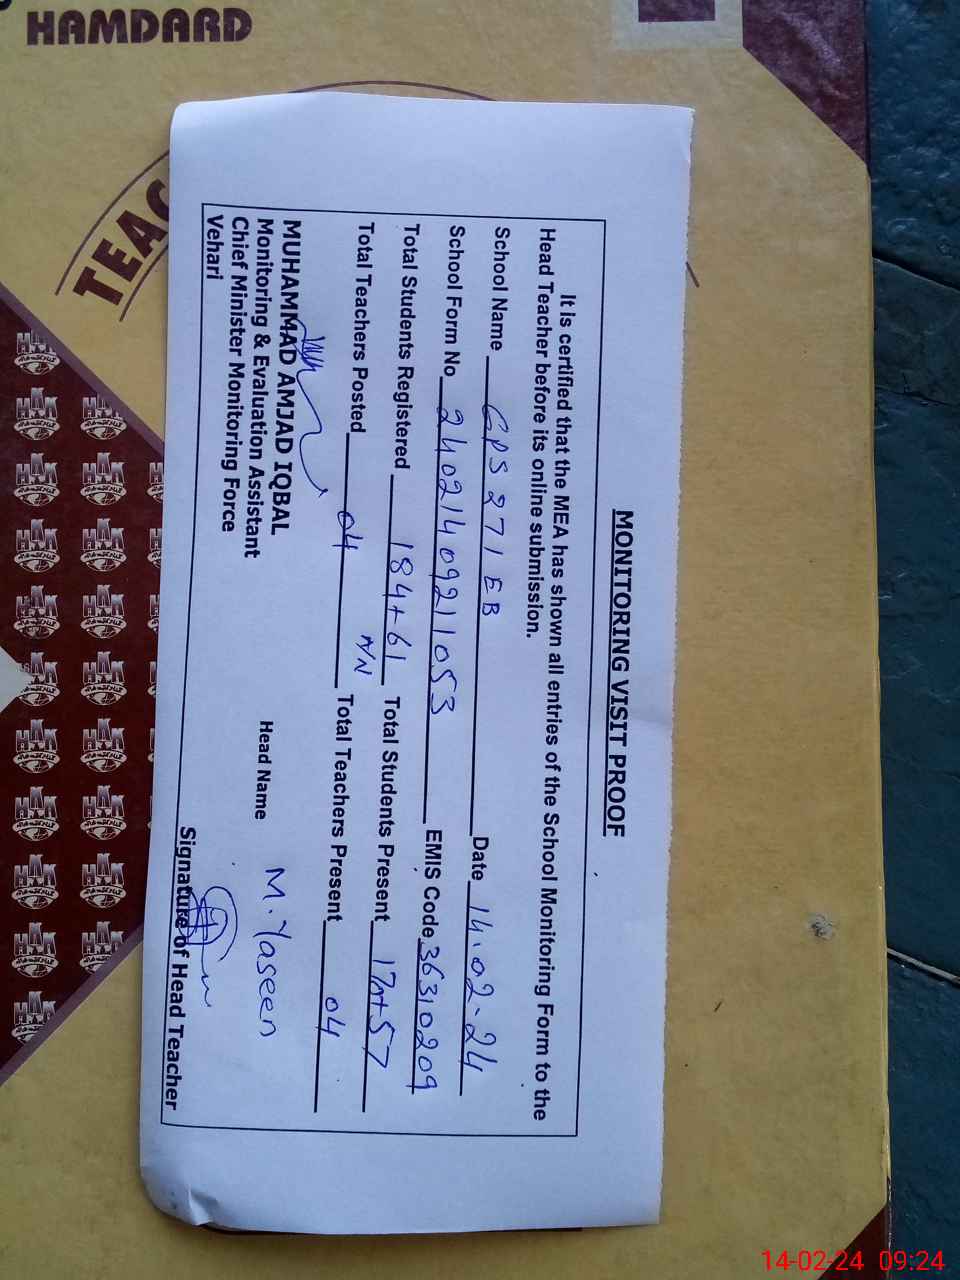 HAMDARD
TEAC
MONITORING VISIT PROOF
It is certified that the MEA has shown all entries of the School Monitoring Form to the
Head Teacher before its online submission.
School Name GPS 271 EB Date 14.02.24
School Form No 24021409211053 EMIS Code 36310209
Total Students Registered 184+61 Total Students Present +57
N/N
Total Teachers Posted 04 Total Teachers Present 04
MUHAMMAD AMJAD IQBAL
Monitoring & Evaluation Assistant Head Name M. Yaseen
Chief Minister Monitoring Force
Vehari Signature of Head Teacher
14-02-24 09:24